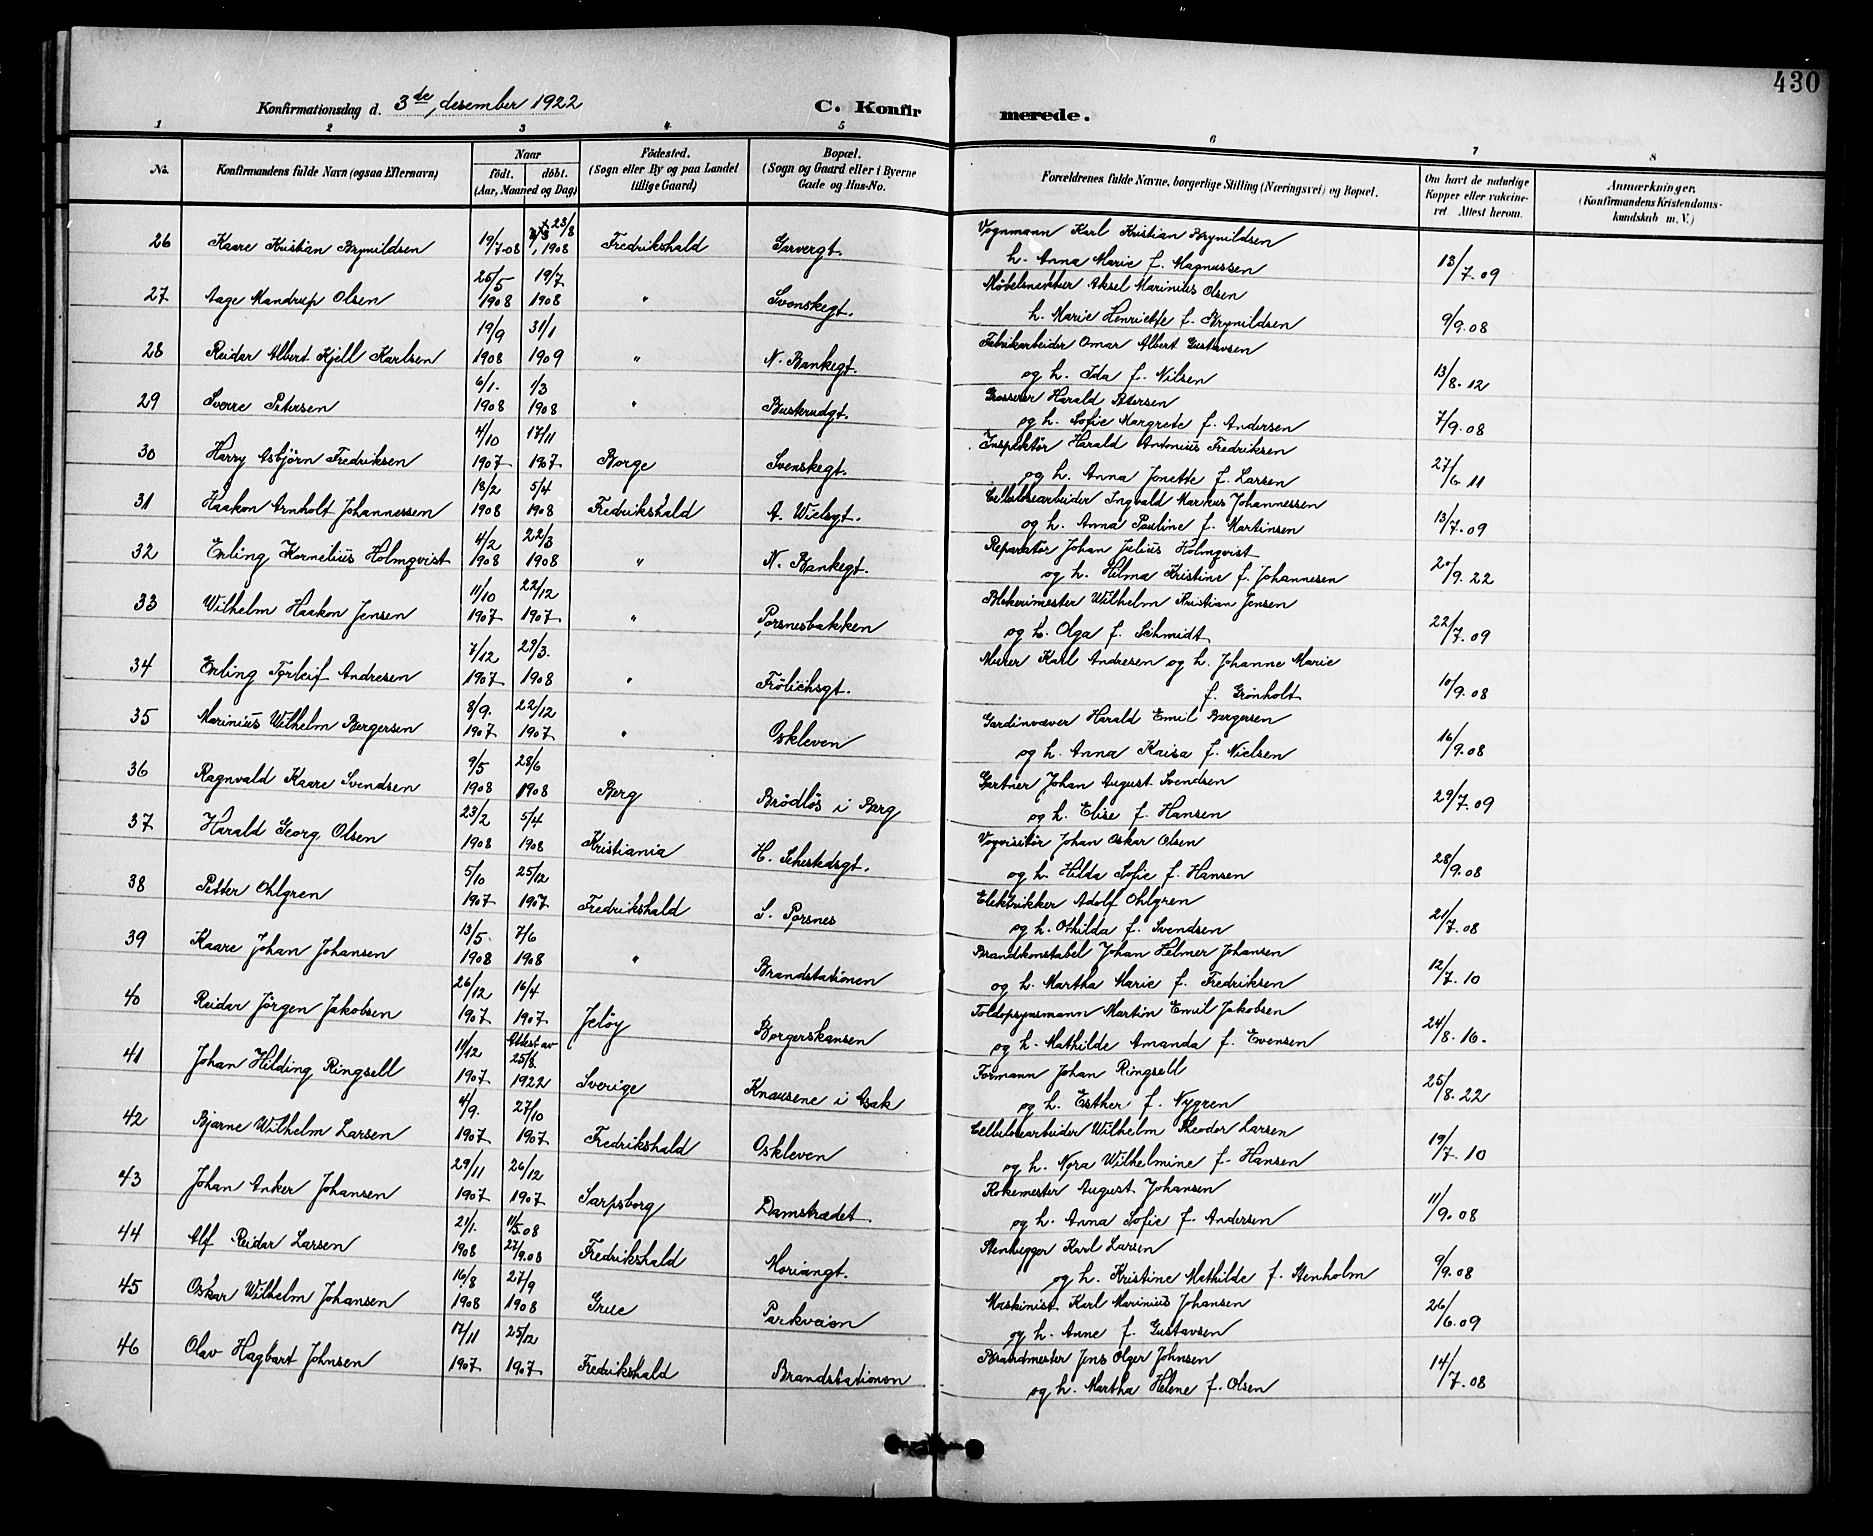 430
Konfirmationsdag d. 3de, desember 1922
C. Konfirmerede.
1 2 3 4 5 6 7 8
No. | Konfirmandens fulde Navn (ogsaa Efternavn) | Naar født. døbt. (Aar, Maaned og Dag) | Födested. (Sogn eller By og paa Landet tillige Gaard) | Bopæl. (Sogn og Gaard eller i Byerne Gade og Hus-No. | Forældrenes fulde Navne, borgerlige Stilling (Næringsvei) og Bopæl. | Om havt de naturlige Kopper eller vakcineret. Attest herom. | Anmærkninger. (Konfirmandens Kristendomskundskab m. V.)
26 Kaare Kristian Brynildsen 19/7-08 23/8 1908 Fredrikshald Garvergt. Vognmann Karl Kristian Brynildsen
h. Anna Marie f. Magnussen 13/7.09
27 Aage Mandrup Olsen 25/5 1908 19/7 1908 " Svenskegt. Møbelsnekker Aksel Marinius Olsen
h. Marie Henriette f. Brynildsen 9/9.08
28 Reidar Albert Kjell Karlsen 19/9 1908 31/1 1909 " N. Bankegt. Fabrikarbeider Omar Albert Gustavsen
og h. Ida f. Nilsen 13/8.12
29 Sverre Petersen 6/1. 1908 1/3 1908 " Buskrudgt. Grosserer Harald Petersen
og h. Sofie Margrete f. Andersen 7/9.08
30 Harry Asbjörn Fredriksen 4/10 1907 17/11 1907 Borge Svenskegt. Inspektør Harald Antonius Fredriksen
og h. Anna Jonette f. Larsen 27/6 11
31 Haakon Arnholt Johannessen 18/2 1908 5/4 1908 Fredrikshald A. Wielsgt. Cellulosearbeider Ingvald Markus Johannessen
og h. Anna Pauline f. Martinsen 13/7.09
32 Erling Kornelius Holmqvist 4/2 1908 22/3 1908 " N. Bankegt. Reparatør Johan Julius Holmqvist
og h. Hilma Kristine f. Johannesen 20/9.22
33 Wilhelm Haakon Jensen 11/10 1907 22/12 1907 " Porsnesbakken Blekerimester Wilhelm Kristian Jensen
og h. Olga f. Schmidt 22/7.09
34 Erling Torleif Andresen 7/12 1907 29/3. 1908 " Frölichsgt. Murer Karl Andresen og h. Johanne Marie
f. Grönholt 10/9.08
35 Marinius Wilhelm Bergersen 8/9. 1907 22/12 1907 " Oskleven Gardinvæver Harald Emil Bergersen
og h. Anna Kaisa f. Nielsen 16/9.08
36 Ragnvald Kaare Svendsen 9/5 1908 28/6 1908 Berg Brödlös i Berg Gartner Johan August Svendsen
og h. Elise f. Hansen 29/7.09
37 Harald Georg Olsen 23/2 1908 5/4 1908 Kristiania Vognvisitör Johan Oskar Olsen
og h. Hilda Sofie f. Hansen 28/9.08
38 Petter Ohlgren 5/10 1907 25/12 1907 Fredrikshald S. Porsnes Elektrikker Adolf Ohlgren
og h. Othilda f. Svendsen 21/7.08
39 Kaare Johan Johansen 13/5. 1908 7/6 1908 " Brandstationen Brandkonstabel Johan Helmer Johansen
og h. Martha Marie f. Fredriksen 12/7.10
40 Reidar Jörgen Jakobsen 26/12 1907 16/4 1907 Jeløy Borgerskansen Toldopsynsmann Martin Emil Jakobsen
og h. Mathilde Amanda f. Evensen 24/8.16.
41 Johan Hilding Ringsell 11/12 1907 Attest av 25/8. 1922 Sverige Knausene i Asak Formann Johan Ringsell
og h. Esther f. Nygren 25/8.22
42 Bjarne Wilhelm Larsen 4/9. 1907 27/10 1907 Fredrikshald Oskleven Cellulosearbeider Wilhelm Theodor Larsen
og h. Nora Wilhelmine f. Hansen 19/7.10
43 Johan Anker Johansen 29/11 1907 26/12 1907 Sarpsborg Damstrædet Kokemester August Johansen
og h. Anna Sofie f. Andersen 11/9.08
44 Alf Reidar Larsen 21/1. 1908 11/5.08 27/9.08 Fredrikshald Moriangt. Stenhugger Karl Larsen
og h. Kristine Mathilde f. Stenholm 9/9.08
45 Oskar Wilhelm Johansen 16/8 1908 27/9 1908 Grue Parkveien Maskinist Karl Marinius Johansen
og h. Anne f. Gustavsen 26/6.09
46 Olav Hagbart Johnsen 17/11 1907 25/12 1907 Fredrikshald Brandstationen Brandmester Jens Olger Johnsen
og h. Martha Helene f. Olsen 14/7.08